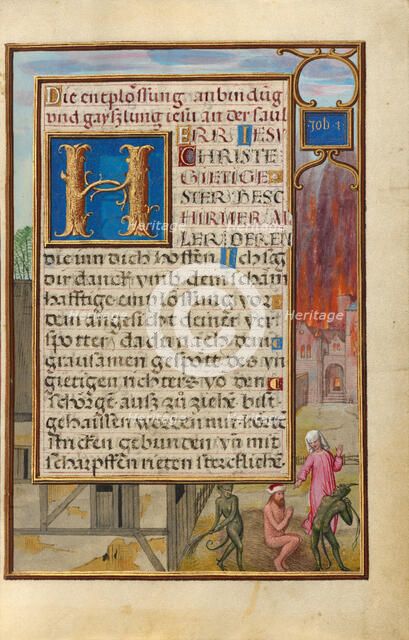 Die entplössung anbindūg
vnd gayszlung iesu an der saul
HERR IESV
CHRISTE
GIETIGE
STER BESC
HIRMER AL
LER DEREN
die inn dich hoffen Ich sag
dir danck vmb dein scham
hafftige einplössung vor
dem angesicht deiner ver
spotter da du nach dem
grausamen gespött des vn
gietigen richters vō den
schörgē ausz zů ziehē bist
gehaissen worden mit hörtē
stricken gebunden vn̄ mit
scharpffen rieten sterckliche
Job · 1 ·
Heritage
Heritage
Heritage
Heritage